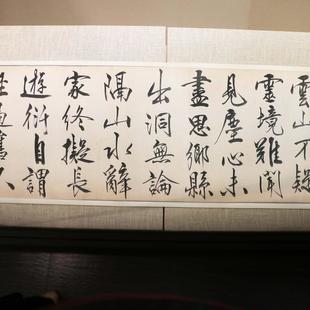 雲山不疑
靈境難聞
見塵心未
盡思鄉縣
出洞無論
隔山水辭
家終擬長
遊衍自謂
過舊